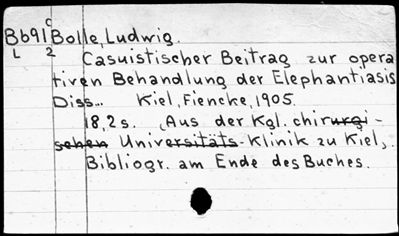 c
Bb91 Bolle, Ludwig.
L 2 Casuistischer Beitrag zur opera
tiven Behandlung der Elephantiasis
Diss... Kiel, Fiencke, 1905.
18,2 s. (Aus der Kgl. chirurgi-
schen Universitäts-Klinik zu Kiel).
Bibliogr. am Ende des Buches.